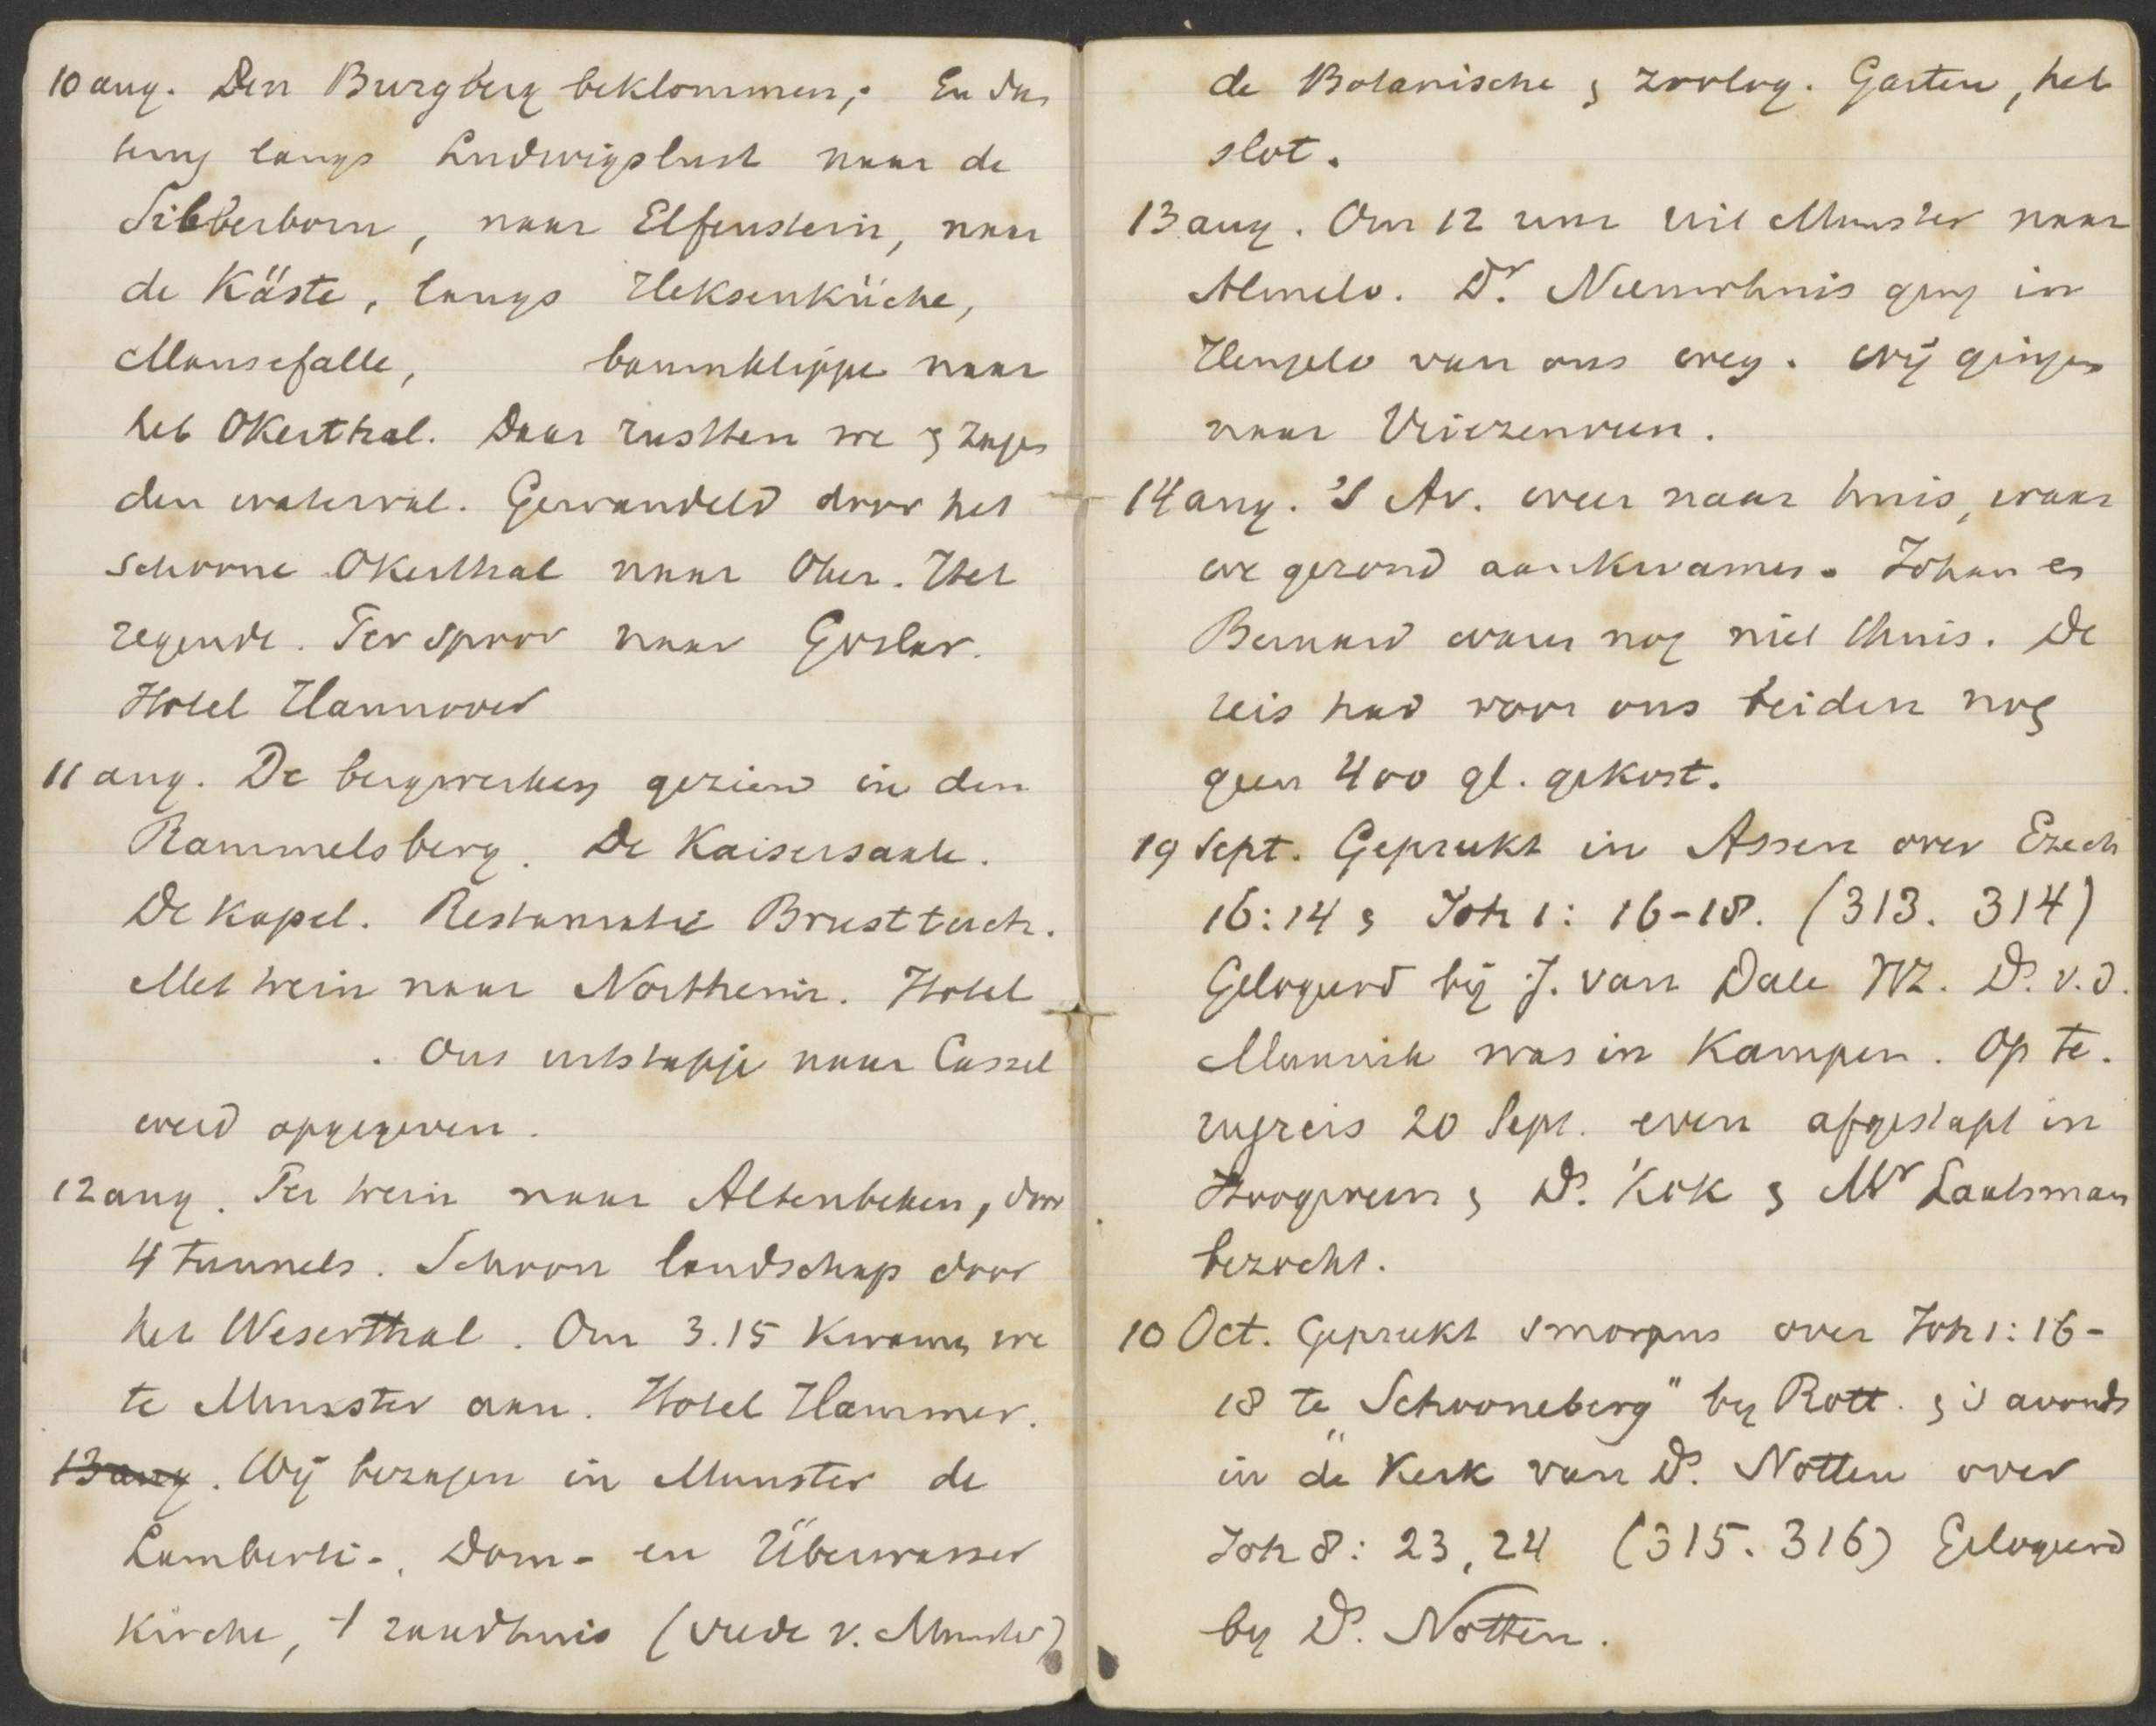 10 aug. Den Burgberg beklommen; En dus
terug langs Ludwigslust naar de
Silberborn, naar Elfenstein, naar
de Käste, langs Heksenküche,
Mausefalle, baumklippe naar
het Okerthal. Daar rustten we & zagen
den waterval. Gewandeld door het
schoone Okerthal naar Oker. Het
regende. Per spoor naar Goslar.
Hotel Hannover
11 aug. De bergwerken gezien in den
Rammelsberg. De Kaisersaale.
De Kapel. Restauratie Brusttuch.
Met trein naar Northeim. Hotel
. Ons uitstapje naar Cassel
werd opgegeven.
12 aug. Per trein naar Altenbeken, door
4 tunnels. Schoon landschap door
het Weserthal. Om 3.15 kwamen we
te Munster aan. Hotel Hammer.
13 aug. Wij bezagen in Munster de
Lamberti-, Dom- en Überwasser
Kirche, 't raadhuis (vrede v. Munster)
de Botanische & zoolog. Garten, het
slot.
13 aug. Om 12 uur uit Munster naar
Almelo. Dr. Nieuwhuis ging in
Hengelo van ons weg. Wij gingen
naar Vriezenveen.
14 aug. 's Av. weer naar huis, waar
we gezond aankwamen. Johan en
Bernard waren nog niet thuis. De
reis had voor ons beiden nog
geen 400 gl. gekost.
19 Sept. Gepreekt in Assen over Ezech
16:14 & Joh 1: 16-18. (313. 314)
Gelogeerd bij J. van Dale Wz. Ds. v.d.
Munnik was in Kampen. Op te-
rugreis 20 Sept. even afgestapt in
Hoogeveen & Ds. Kok & Mr Laatsman
bezocht.
10 Oct. Gepreekt smorgens over Joh 1: 16-
18 te „Schooneberg" by Rott. & 's avonds
in de Kerk van Ds. Notten over
Joh 8: 23, 24 (315. 316) Gelogeerd
by Ds. Notten.